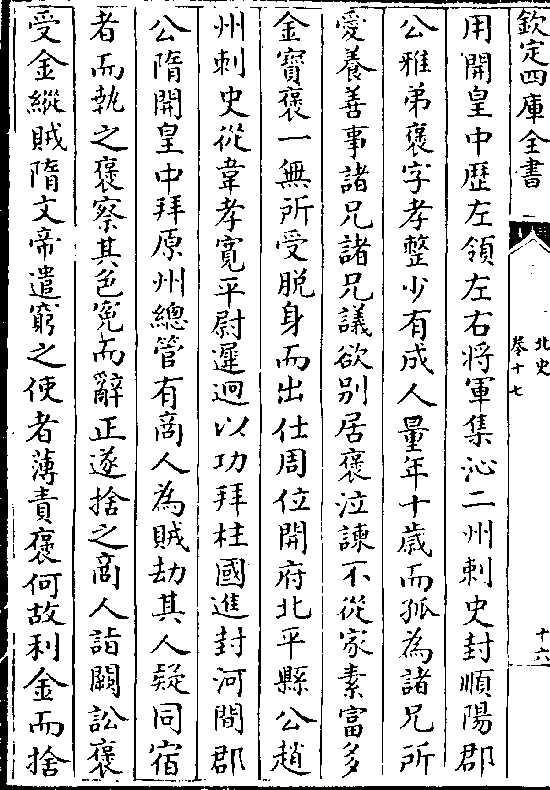 欽定四庫全書
北史
卷十七
十六
用開皇中歴左領左右將軍集沁二州刺史封順陽郡
公雅弟褒字孝整少有成人量年十歳而孤為諸兄所
愛養善事諸兄諸兄議欲别居褒泣諫不從家素富多
金寳褒一無所受脱身而出仕周位開府北平縣公趙
州刺史從韋孝寛平尉遲迥以功拜柱國進封河間郡
公隋開皇中拜原州總管有商人為賊劫其人疑同宿
者而執之褒察其色寃而辭正遂捨之商人詣闕訟褒
受金縱賊隋文帝遣窮之使者薄責褒何故利金而捨